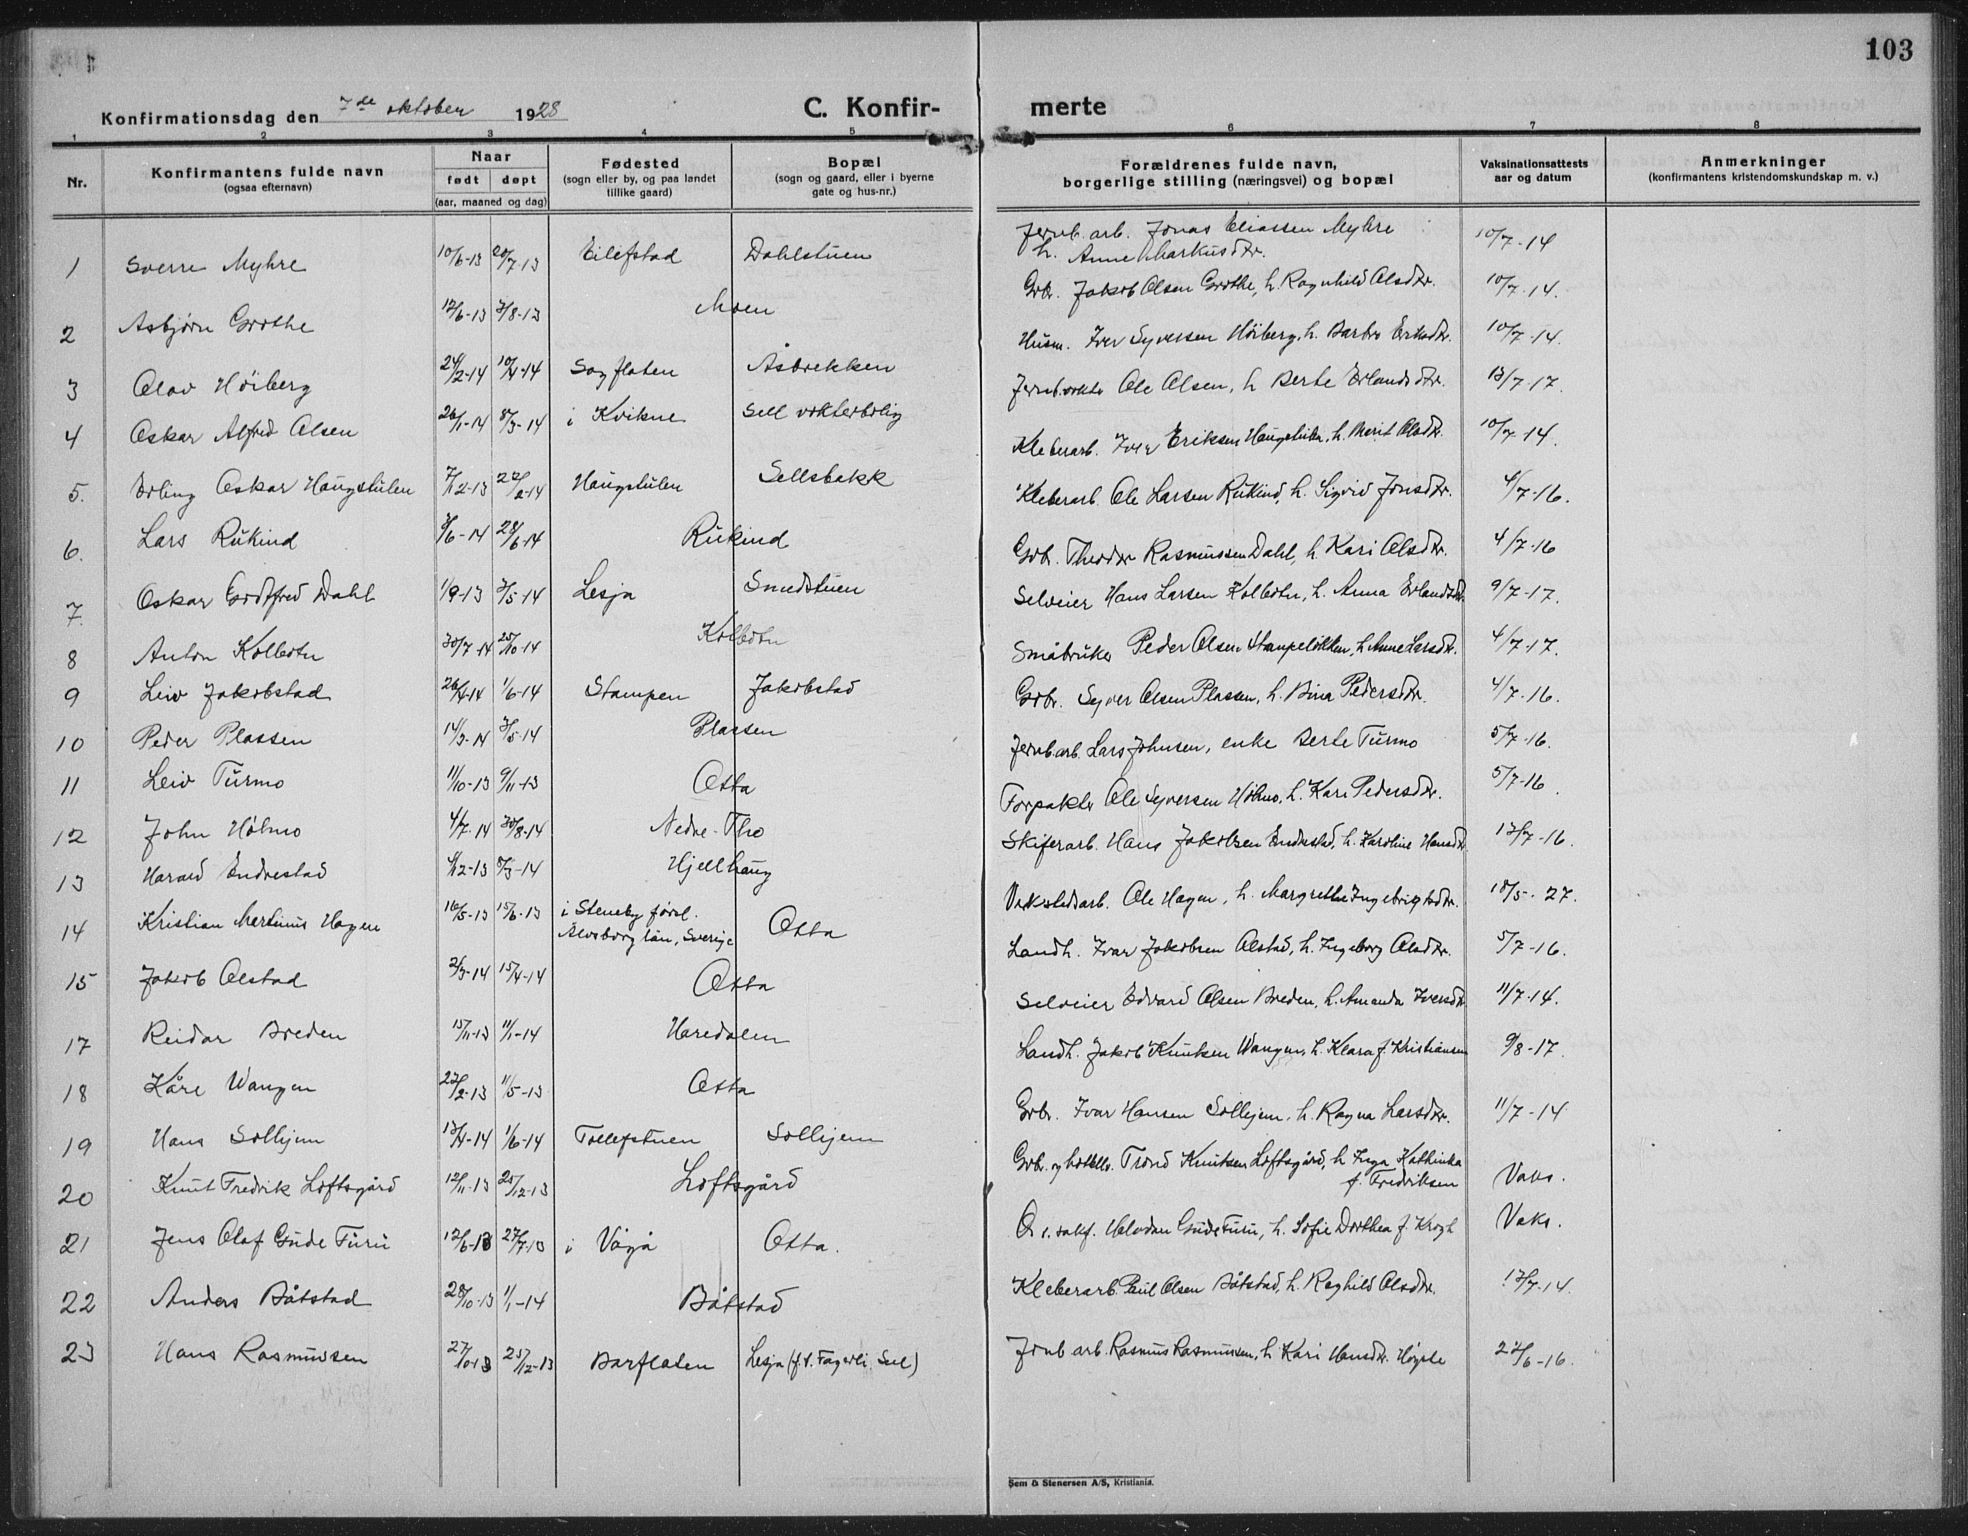 103
Konfirmationsdag den 7de oktober 1928 C. Konfir- merte
1 2 3 4 5 6 7 8
Nr. Konfirmantens fulde navn (ogsaa efternavn) Naar født døpt (aar, maaned og dag) Fødested (sogn eller by, og paa landet tillike gaard) Bopæl (sogn og gaard, eller i byerne gate og hus-nr.) Forældrenes fulde navn, borgerlige stilling (næringsvei) og bopæl Vaksinationsattests aar og datum Anmerkninger (konfirmantens kristendomskundskap m. v.)
1 Sverre Myhre 10/6-13 20/7-13 Eilefstad Dahlstuen Jernb. arb. Jonas Eliassen Myhre h. Anne Markusdtr. 10/7-14
2 Asbjørn Grothe 12/6-13 3/8-13 Moen Gbr. Jakob Olsen Grothe, h. Ragnhild Olsdtr. 10/7-14.
3 Olav Höiberg 24/2-14 10/4-14 Sagflaten Åsbrekken Husm. Iver Syversen Höiberg, h. Barbro Eriksdtr. 10/7-14.
4 Oskar Alfred Olsen 26/1-14 8/3-14 i Kvikne Sell vokterbolig Jernb.vokter Ole Olsen, h Berte Erlandsdtr. 13/7-17.
5. Erling Oskar Haugstulen 7/12-13 22/2-14 Haugstulen Sellsbakk Kleberarb. Iver Eriksen Haugstulen, h. Marit Olsdtr. 10/7-14.
6. Lars Rukind 3/6-14 28/6-14 Rukind Kleberarb. Ole Larsen Rukind, h. Sigrid Jonsdtr. 4/7-16.
7. Oskar Godtfred Dahl 1/9-13 3/5-14 Lesja Smedstuen Gbr. Theodor Rasmussen Dahl, h Kari Olsdtr. 4/7-16
8 Anton Kolbotn 30/7-14 25/10-14 Kolbotn Selveier Hans Larsen Kolbotn, h. Anna Erlandsdtr. 9/7-17.
9 Leiv Jakobstad 26/4-14 1/6-14 Stampen Jakobstad Småbruker Peder Olsen Stampelökken, h Anne Larsdtr. 4/7-17.
10 Peder Plassen 14/3-14 3/5-14 Plassen Gbr. Syver Olsen Plassen, h. Bina Pedersdtr. 4/7-16.
11 Leiv Turmo 11/10-13 9/11-13 Otta Jernb.arb. Lars Johnsen, enke Berte Turmo 5/7-16.
12 John Hölmo 4/7-14 30/8-14 Nedre-Tho Forpakter Ole Syversen Hölmo, h. Kari Pedersdtr. 5/7-16.
13 Harald Endrestad 4/12-13 8/3-14 Hjellhaug Skiferarb. Hans Jakobsen Endrestad, h. Karoline Hansdtr. 13/7-16.
14 Kristian Martinus Hagen 16/5-13 15/6-13 i Steneby försl. Älvsborg län, Sverige Otta Verkstedsarb. Ole Hagen, h. Margrethe Ingebrigtsdtr. 18/5-27.
15 Jakob Olstad 2/3-14 15/4-14 Otta Landh. Ivar Jakobsen Olstad, h. Ingeborg Olsdtr. 5/7-16.
17 Reidar Breden 15/11-13 11/1-14 Haredalen Selveier Edvard Olsen Breden, h. Amanda Iversdtr. 11/7-14.
18 Kåre Wangen 23/2-13 11/5-13 Otta Landh. Jakob Knutsen Wangen, h. Klara f. Kristiansen 9/8-17.
19 Hans Solhjem 13/4-14 1/6-14 Tollefstuen Solhjem Gbr. Ivar Hansen Solhjem, h. Ragna Larsdtr. 11/7-14
20 Knut Fredrik Loftsgård 12/11-13 25/12-13 Loftsgård Gbr. og hotellv. Trond Knutsen Loftsgård, h Inga Kathinka f. Fredriksen Vaks.
21 Jens Olaf Gude Furu 12/6-13 27/7-13 i Vågå Otta. O. r. sakf. Halvdan Gude Furu, h. Sofie Dorthea f. Krogh Vaks.
22 Anders Båtstad 28/10-13 1/1-14 Båtstad Kleberarb. Paul Olsen Båtstad, h. Raghild Olsdtr. 13/7-14.
23 Hans Rasmussen 27/10-13 25/12-13 Barflaten Lesja (f. t. Fagerli, Sel) Jrnb arb. Rasmus Rasmussen, h. Kari Hansdtr. 22/6-16.
Sem & Stenersen A/S, Kristiania.